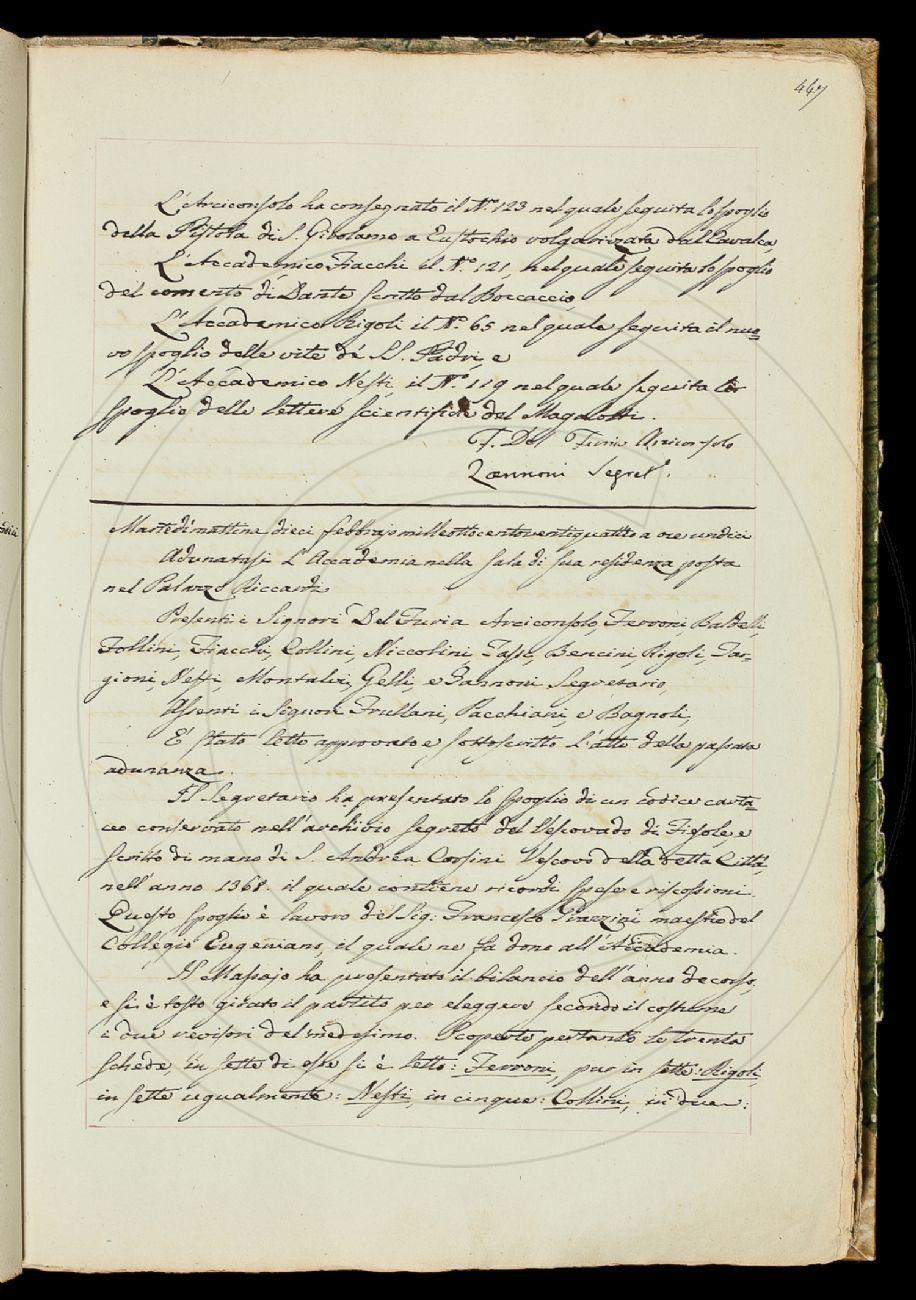 467
L'Arciconsolo ha consegnato il N.º 123 nel quale seguita lo spoglio
della Pistola di S. Girolamo a Eustochio volgarizzata dal Cavalca,
L'Accademico Fiacchi il N.º 121, nel quale seguita lo spoglio
del comento di Dante scritto dal Boccaccio,
L'Accademico Rigoli il N.º 65 nel quale seguita il nuo=
vo spoglio delle vite de' SS. Padri, e
L'Accademico Nesti, il N.º 119 nel quale seguita lo
spoglio delle lettere scientifiche del Magalotti.
F. Del Furia Arciconsolo
Zannoni Segret.º
Martedì mattina dieci febbrajo milleottocentoventiquattro a ore undici
Adunatasi L'Accademia nella sala di sua residenza posta
nel Palazzo Riccardi
Presenti i Signori Del Furia Arciconsolo, Ferroni, Baldelli,
Follini, Fiacchi, Collini, Niccolini, Tassi, Bencini, Rigoli, Tar=
gioni, Nesti, Montalvi, Gelli, e Zannoni Segretario,
Assenti i Signori Frullani, Pacchiani, e Bagnoli,
E' stato letto approvato e sottoscritto l'atto della passata
adunanza.
Il Segretario ha presentato lo spoglio di un codice carta=
ceo conservato nell'archivio segreto del Vescovado di Fiesole, e
scritto di mano di S. Andrea Corsini Vescovo della detta Città,
nell'anno 1368. il quale contiene ricordi spese e riscossioni.
Questo spoglio è lavoro del Sig: Francesco Piazzini maestro del
Collegio Eugeniano, il quale ne fa dono all'Accademia.
Il Massajo ha presentato il bilancio dell'anno decorso,
e si è tosto girato il partito per eleggere secondo il costume
i due revisori del medesimo. Scoperte pertanto le trenta
schede, in sette di esse si è letto: Ferroni, pur in sette: Rigoli,
in sette ugualmente: Nesti, in cinque: Collini, in due: